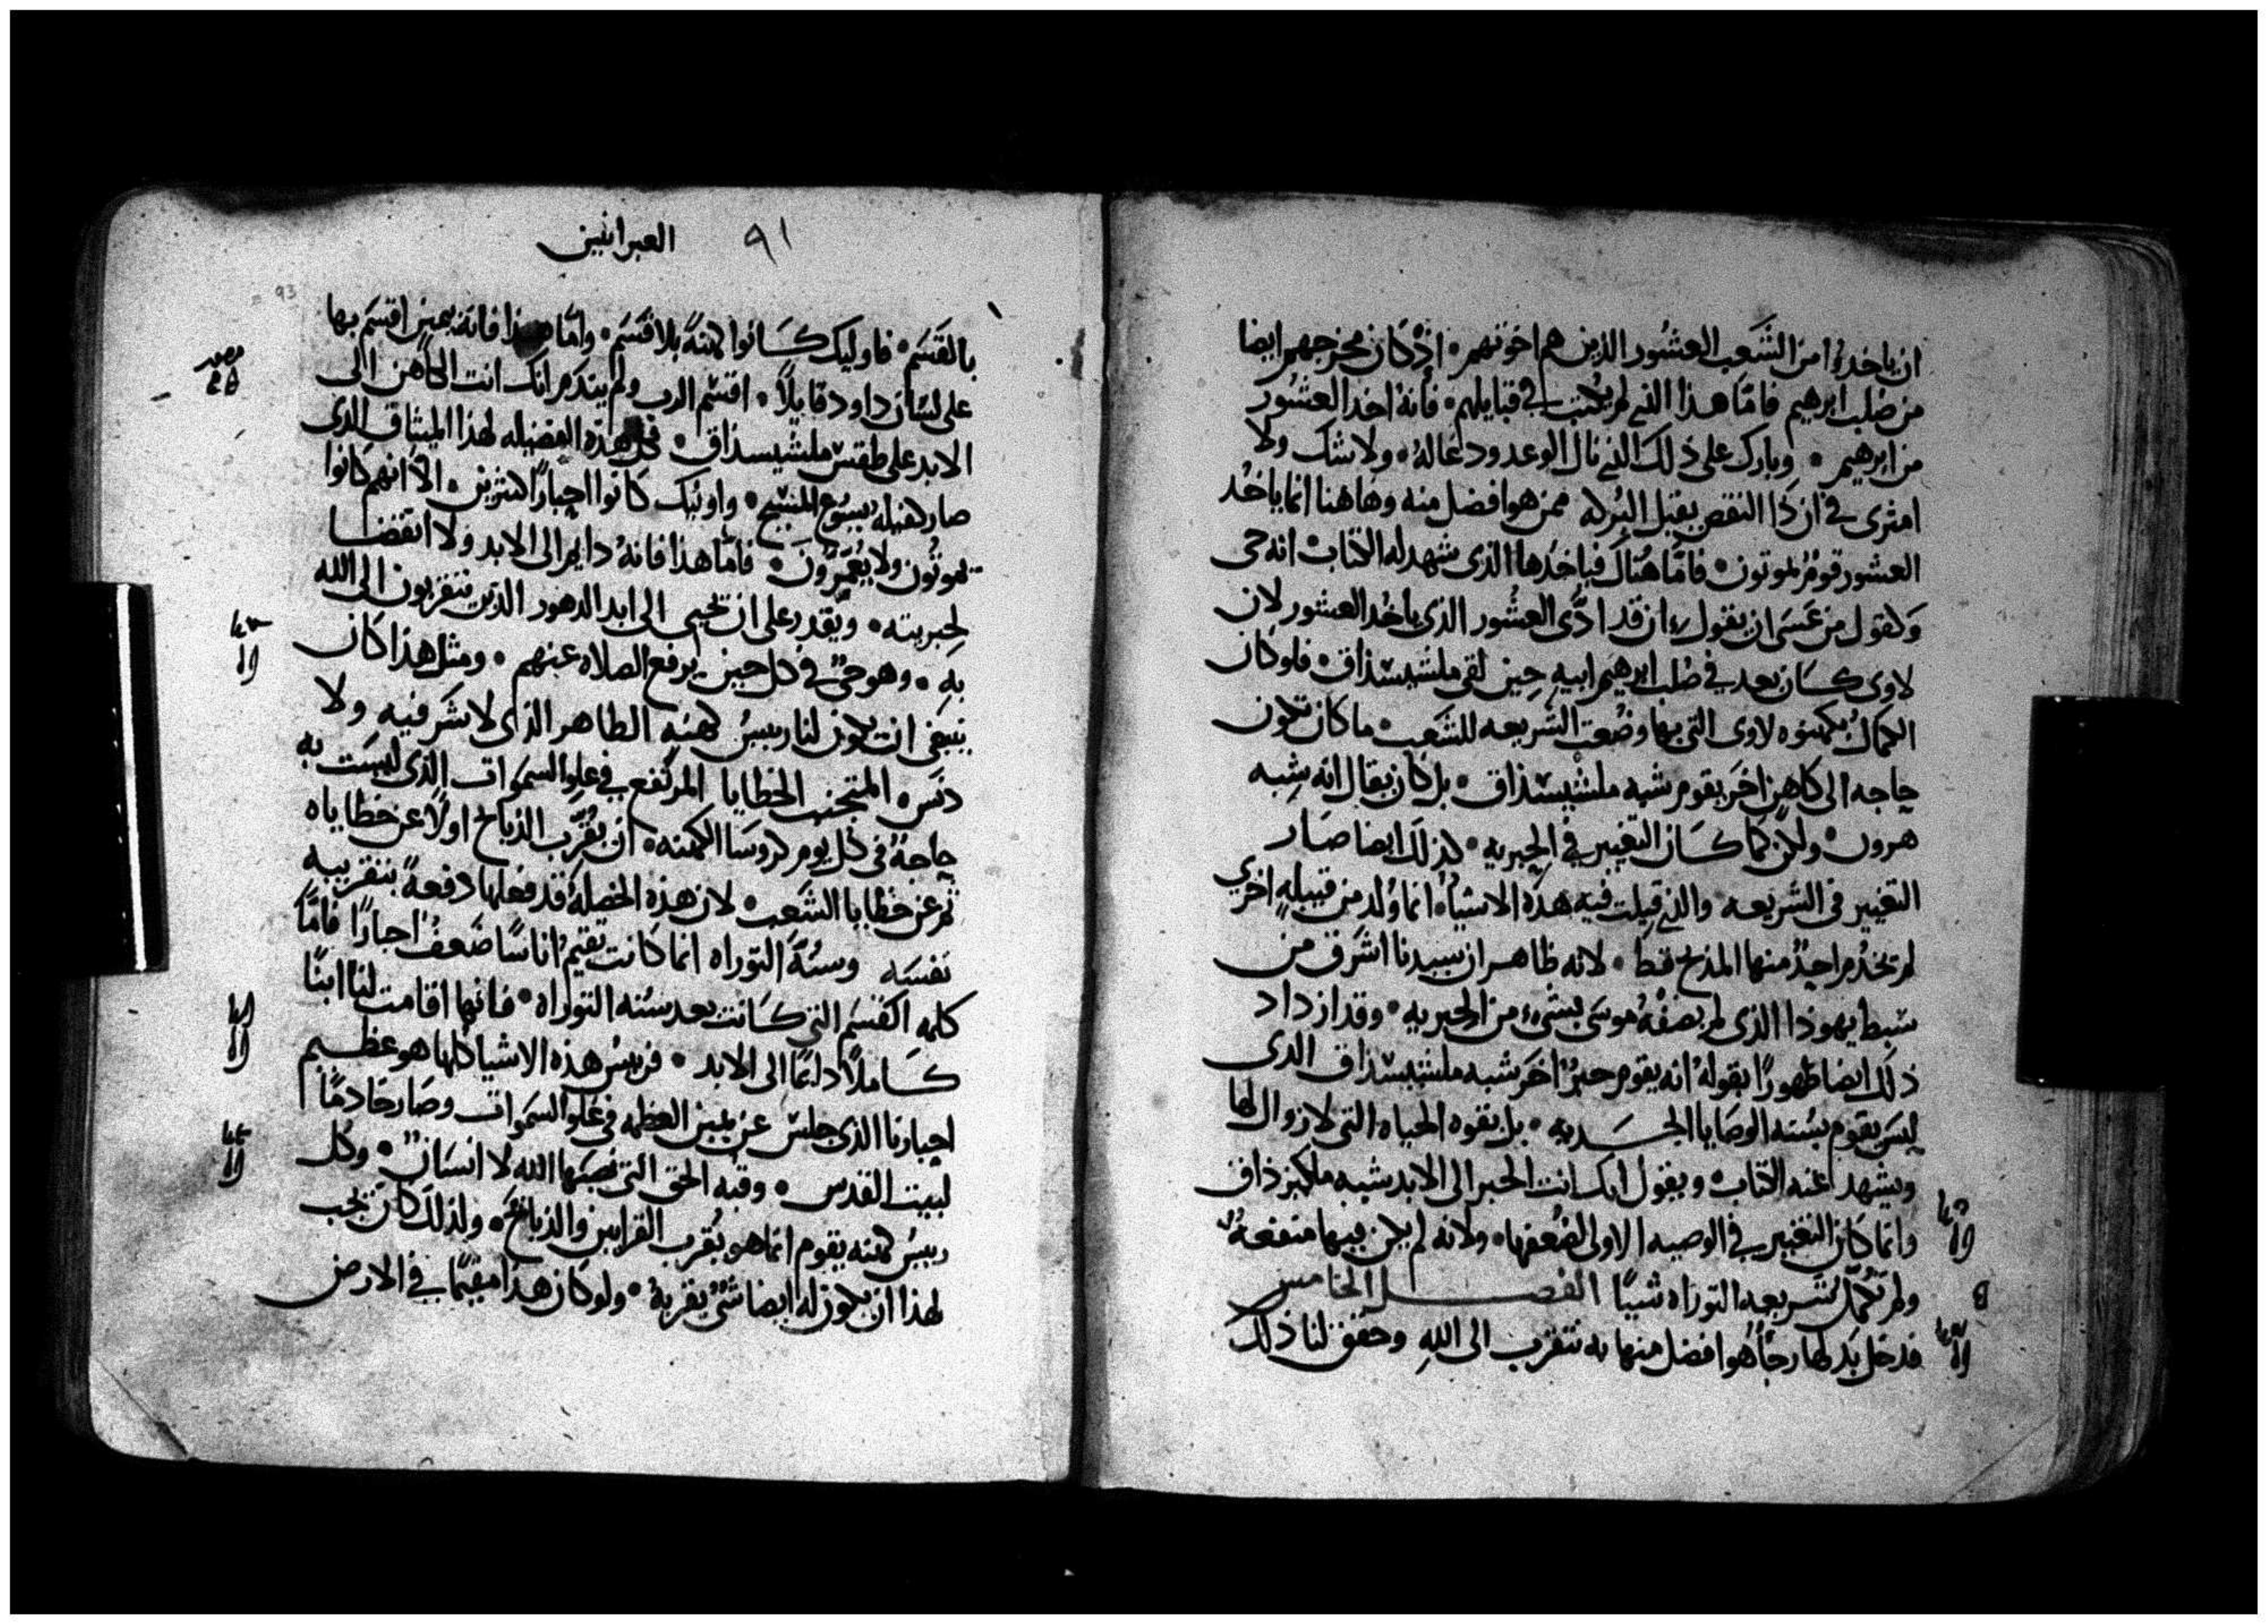 ان ياخدوا من الشعب العشور الذين هم اخوتهم • اذ كان مخرجهم ايضا
من صلب ابرهيم فاما هذا الذي لم يكتب في قبايلهم • فانه اخد العشور
من ابرهيم • وبارك على ذلك الذي نال الوعد ودعا له • ولا شك ولا
امترى في ان ذا النقص يقبل البركه ممن هو افضل منه وهاهنا انما ياخد
العشور قوم يموتون • فاما هناك فياخدها الذي شهد له الكتاب انه حى
وكقول من عسى ان يقول ان قد ادى العشور الذي ياخد العشور لان
لاوى كان بعد في صلب ابرهيم ابيه حين لقى ملشيسذاق • فلو كان
الكمال بكهنوه لاوى التى بها وضعت الشريعه للشعب ما كان تكون
حاجه الى كاهن اخر يقوم شبه ملشيسذاق • بل كان يقال انه شبه
هرون • ولكن كما كان التغيير في الحبريه • كذلك ايضا صار
التغيير في الشريعه • والذي قيلت فيه هذه الاشيا • انما ولد من قبيله اخري
لم يخدم احد منها المذبح قط • لانه ظاهر ان سيدنا اشرق من
سبط يهوذا الذى لم يصفه موسى بشىء من الحبريه • وقد ازداد
ذلك ايضا ظهورا بقوله انه يقوم حبرا اخر شبه ملشيسذاق الدى
ليس يقوم بسنه الوصايا الجسديه • بل بقوه الحياه التى لا زوال لها
ويشهد عنه الكتاب • ويقول انك انت الحبر الى الابد شبه ملكيزداق
وانما كان التغيير في الوصيه الاولى لضعفها • ولانه لم يكن فيها منفعه
ولم تكمل شريعه التوراه شييا الفصل الخامس
فدخل بدلها رجا هو افضل منها به نتقرب الى الله وحقق لنا ذلك
٩١ العبرانيين
93
بالقسم • فاوليك كانوا كهنة بلا قسم • واما هذا فانه بيمين اقسم بها
على لسان داود قايلا • اقسم الرب ولم يتدمر انك انت الكاهن الى
الابد على طقس ملشيسذاق • فكل هذه الفضيله لهذا الميثاق الذى
صار كفيله يسوع المسيح • واوليك كانوا احبارا كثيرين • الا انهم كانوا
يموتون ولا يعمرون • فاما هذا فانه دايم الى الابد ولا انقضا
لحبريته • ويقدر على ان يحيى الى ابد الدهور الذين يتقربون الى الله
به • وهو حى في كل حين يرفع الصلاه عنهم • ومثل هذا كان
ينبغي ان يكون لنا رييس كهنه الطاهر الذى لا شر فيه ولا
دنس • المتجنب الخطايا المرتفع في علو السموات الذى ليست به
حاجة في كل يوم كروسا الكهنه • ان يقرب الذبايح اولا عن خطاياه
ثم عن خطايا الشعب • لان هذه الخصله قد فعلها دفعة بتقريبه
نفسه وسنة التوراه انما كانت تقيم اناسا ضعف احبارا فاما
كلمه القسم التي كانت بعد سنه التوراه • فانها اقامت لنا ابنا
كاملا دايما الى الابد • فرييس هذه الاشيا كلها هو عظيم
احبارنا الذى جلس عن يمين العظمه في علو السموات وصار خادما
لبيت القدس • وقبه الحق التى نصبها الله لا انسان • وكل
رييس كهنه يقوم انما هو يقرب القرابين والذبايح • ولذلك كان يجب
لهذا ان يكون له ايضا شى يقربه • ولو كان هذا مقيما في الارض